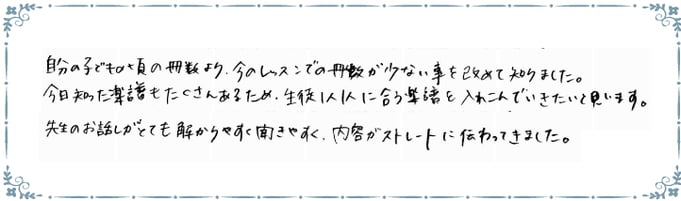 自分の子どもの頃の冊数より、今のレッスンでの冊数が少ない事を改めて知りました。
今日知った楽譜もたくさんあるため、生徒1人1人に合う楽譜を入れこんでいきたいと思います。
先生のお話しがとても解かりやすく聞きやすく、内容がストレートに伝わってきました。